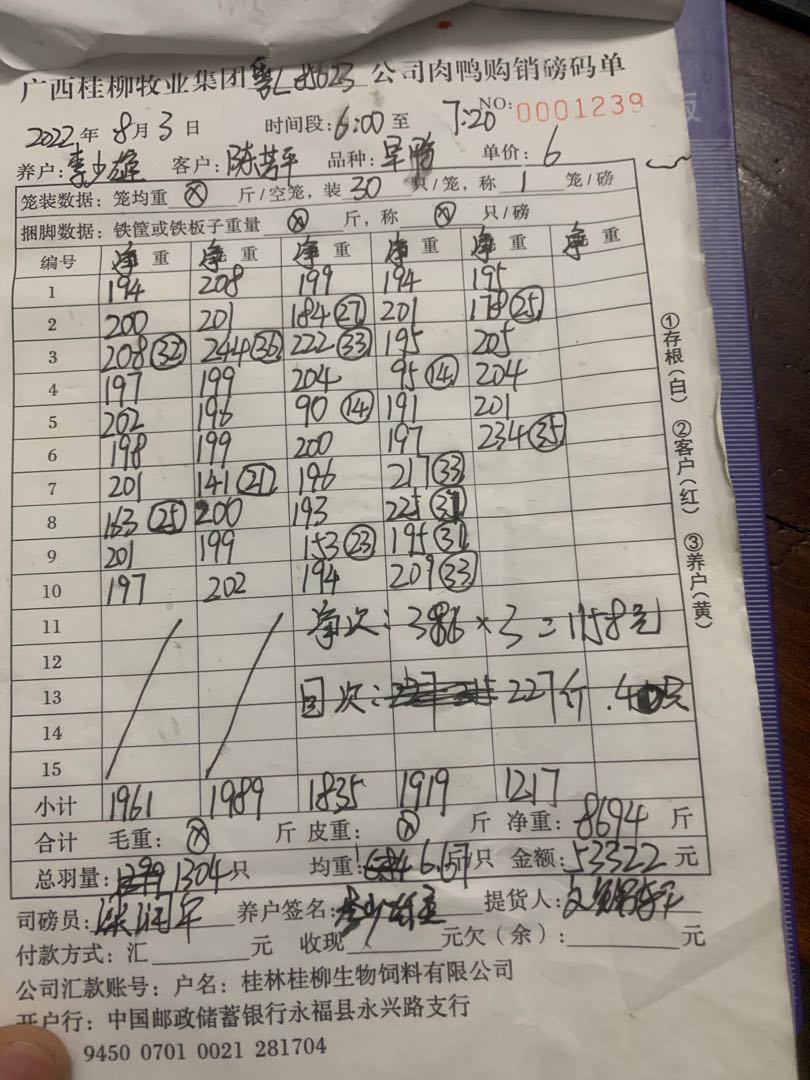 广西桂柳牧业集团粤L 公司肉鸭购销磅码单
NO: 0001239
2022年8月3日 时间段: 6:00至7:20
养户: 李少雄 客户: 陈芳平 品种: 旱鸭 单价: 6
笼装数据: 笼均重 ⊗ 斤/空笼, 装30只/笼, 称1笼/磅
捆脚数据: 铁筐或铁板子重量 ⊗ 斤, 称 ⊗ 只/磅
编号 净重 净重 净重 净重 净重 净重
1 194 208 199 194 195
2 200 201 184㉗ 201 178㉕
3 208㉜ 244㊱ 222㉝ 195 205
4 197 199 204 95⑭ 204
5 202 196 90⑭ 191 201
6 198 199 200 197 234㉟
7 201 141㉑ 196 217㉝
8 163㉕ 200 193 225
9 201 199 153㉓ 195㉛
10 197 202 194 209㉝
11 次: 386×3=1158元
12
13 次: 227斤.40只
14
15
小计 1961 1989 1835 1919 1217
合计 毛重: ⊗ 斤 皮重: ⊗ 斤 净重: 8694 斤
总羽量: 1304只 均重: 6.67斤/只 金额: 53322元
司磅员: 养户签名: 李少雄 提货人:
付款方式: 汇 元 收现 元欠(余): 元
公司汇款账号: 户名: 桂林桂柳生物饲料有限公司
开户行: 中国邮政储蓄银行永福县永兴路支行
9450 0701 0021 281704
①存根(白) ②客户(红) ③养户(黄)